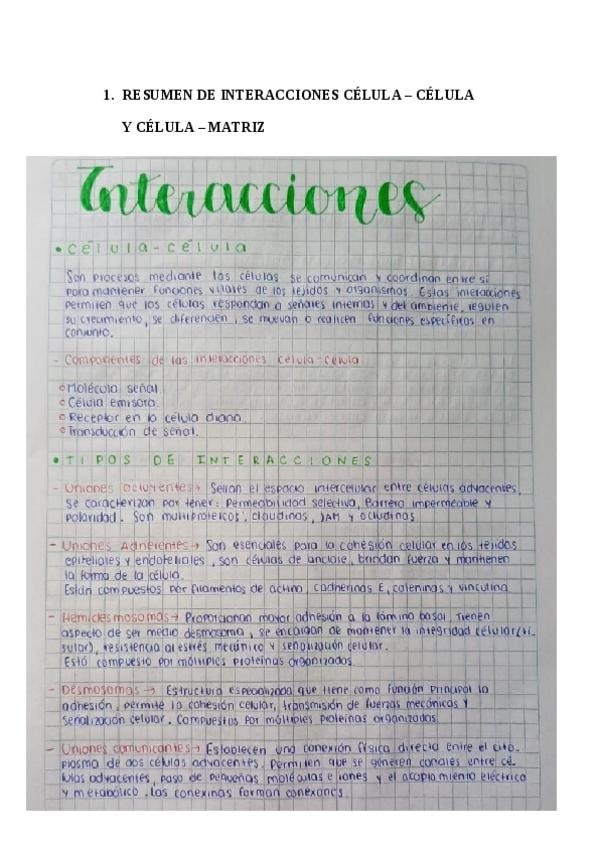 1. RESUMEN DE INTERACCIONES CÉLULA – CÉLULA
Y CÉLULA – MATRIZ
Interacciones
• célula-célula
Son procesos mediante las células se comunican y coordinan entre sí
para mantener funciones vitales de los tejidos y organismos. Estas interacciones
permiten que los células respondan a señales internas y del ambiente, regulen
su crecimiento, se diferencien, se muevan o realicen funciones específicas en
conjunto.
- Componentes de las interacciones célula-célula
○ Molécula señal.
○ Célula emisora.
○ Receptor en la célula diana.
○ Transducción de señal.
• TIPOS DE INTERACCIONES
- Uniones Ocluyentes→ Sellan el espacio intercelular entre células adyacentes.
Se caracterizan por tener: Permeabilidad selectiva, Barrera impermeable y
polaridad. Son multiproteicos, claudinas, JAM y ocludinas
- Uniones Adherentes→ Son esenciales para la cohesión celular en los tejidos
epiteliales y endoteliales, son células de anclaje, brindan fuerza y mantienen
la forma de la célula.
Están compuestos por filamentos de actina, cadherinas E, cateninas y vinculina.
- Hemidesmosomas→ Proporcionan mayor adhesión a la lámina basal. Tienen
aspecto de ser medio desmosoma, se encargan de mantener la integridad celular(ti-
sular), resistencia al estrés mecánico y señalización celular.
Está compuesto por múltiples proteínas organizados.
- Desmosomas → Estructura especializada que tiene como función principal la
adhesión, permite la cohesión celular, transmisión de fuerzas mecánicas y
señalización celular. Compuestos por múltiples proteínas organizadas.
- Uniones comunicantes→ Establecen una conexión física directa entre el cito-
plasma de dos células adyacentes. Permiten que se generen canales entre cé-
lulas adyacentes, paso de pequeñas moléculas e iones y el acoplamiento eléctrico
y metabólico. Las conexinas forman conexones.